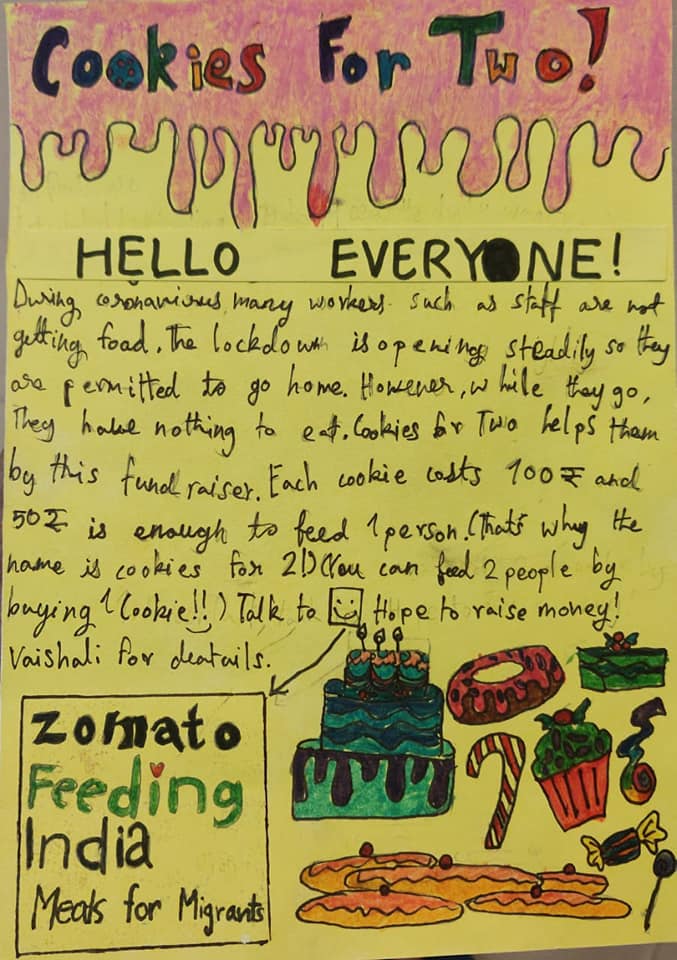 Cookies For Two!
HELLO EVERYONE!
During coronavirus, many workers such as staff are not
getting food. The lockdown is opening steadily so they
are permitted to go home. However, while they go,
They have nothing to eat. Cookies for Two helps them
by this fundraiser. Each cookie costs 100₹ and
50₹ is enough to feed 1 person. (That's why the
name is cookies for 2!) (You can feed 2 people by
buying 1 Cookie!!) Talk to Hope to raise money!
Vaishali for deatails.
zomato
Feeding
India
Meals for Migrants